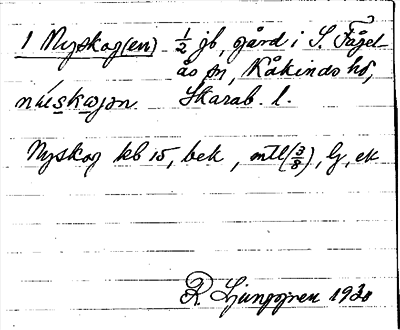 1 Nyskog(en) 1/2 gb, gård i S. Fågel-
ås sn, Kåkinds hd,
Skarab. l.
Nyskog kb 15, bek, mtl (3/8), lj, ek
R. Ljunggren 1930